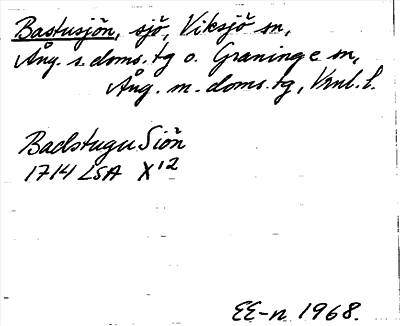 Bastusjön, sjö, Viksjö sn,
Ång. s. doms. tg o. Graninge sn,
Ång. m. doms. tg, Vnl. l.
Badstugu Siön
1714 LSA X12
EE-n 1968.